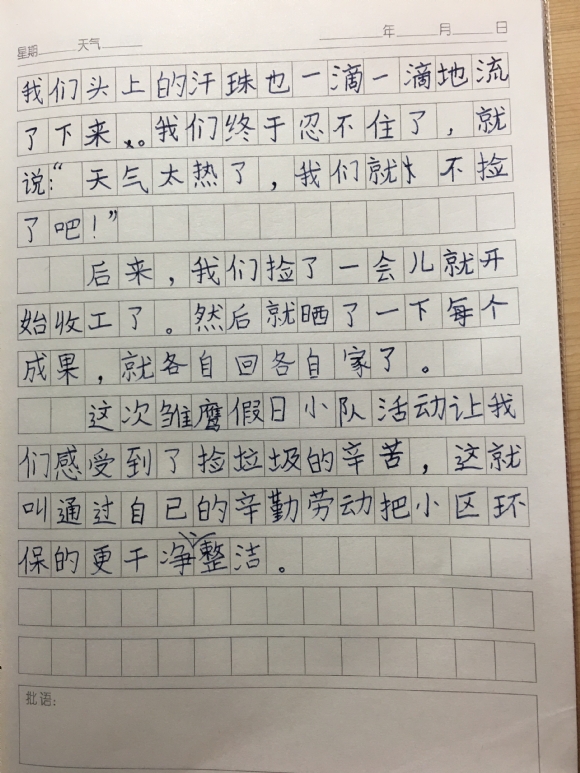 星期 天气 年 月 日
我们头上的汗珠也一滴一滴地流
了下来。我们终于忍不住了，就
说：“天气太热了，我们就不捡
了吧！”
后来，我们捡了一会儿就开
始收工了。然后就晒了一下每个
成果，就各自回各自家了。
这次雏鹰假日小队活动让我
们感受到了捡垃圾的辛苦，这就
叫通过自已的辛勤劳动把小区环
保的更干净整洁。
批语：